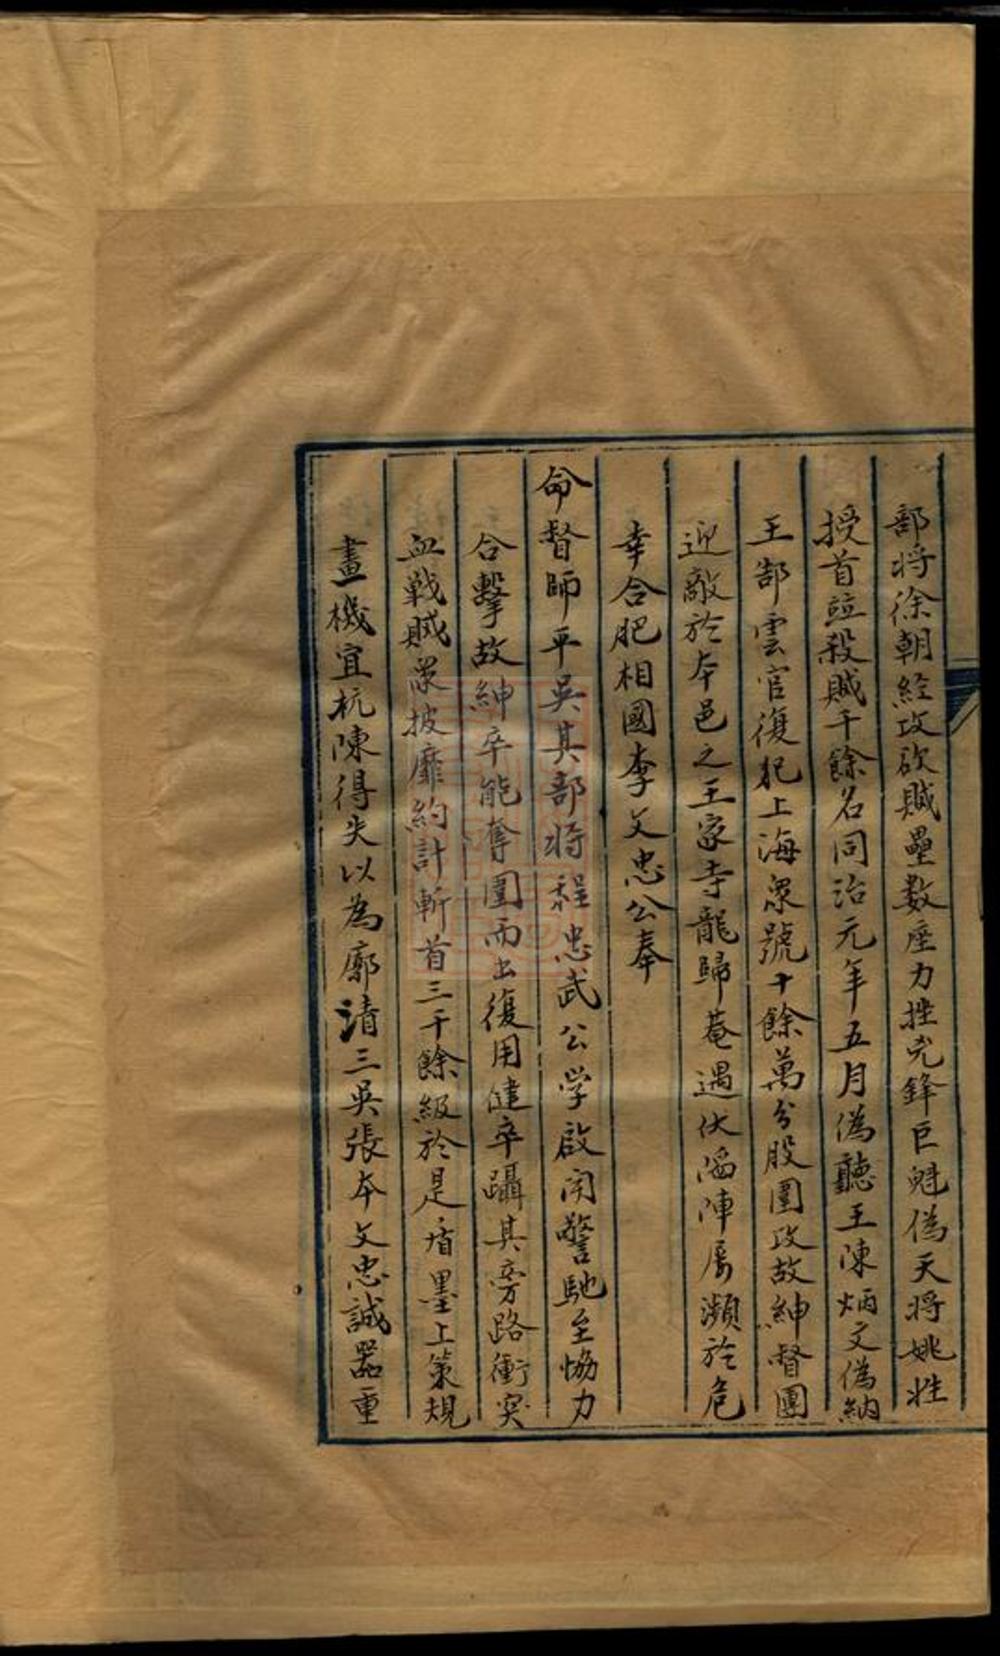 部将徐朝經攻砍賊壘數座力挫兇鋒巨魁偽天将姚姓
授首並殺賊千餘名同治元年五月偽聽王陳炳文偽納
王郜雲官復犯上海衆號十餘萬分股圍攻故紳督團
迎敵於本邑之王家寺龍歸菴遇伏陷陣屢瀕於危
幸合肥相國李文忠公奉
命督師平吳其部将程忠武公学啟闻警馳至協力
合擊故紳卒能奪圍而出復用健卒躡其旁路衝突
血戰賊衆披靡約計斬首三千餘級於是盾墨上策規
畫機宜杭陳得失以為廓清三吳張本文忠誠器重